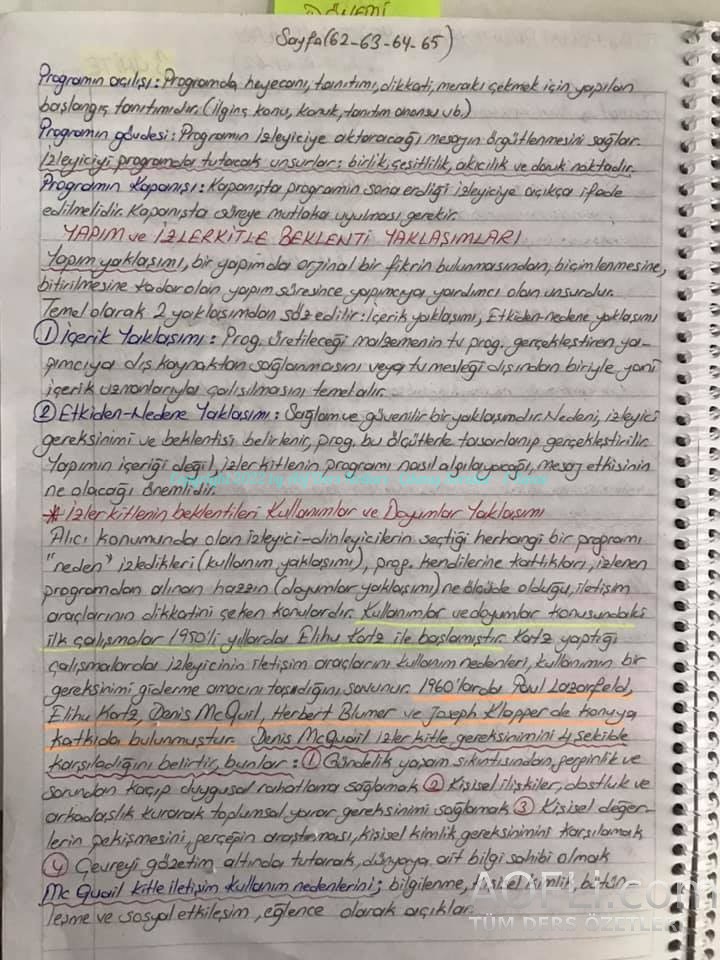 DÖNEMİ
Sayfa(62-63-64-65)
Programın açılışı: Programda heyecanı, tanıtımı, dikkati, merakı çekmek için yapılan
başlangıç tanıtımıdır. (İlginç konu, konuk, tanıtım anonsu vb.)
Programın gövdesi: Programın izleyiciye aktaracağı mesajın örgütlenmesini sağlar.
İzleyiciyi programda tutacak unsurlar: birlik, çeşitlilik, akıcılık ve doruk noktadır.
Programın Kapanışı: Kapanışta programın sona erdiği izleyiciye açıkça ifade
edilmelidir. Kapanışta süreye mutlaka uyulması gerekir.
YAPIM ve İZLERKİTLE BEKLENTİ YAKLAŞIMLARI
Yapım yaklaşımı, bir yapımda orjinal bir fikrin bulunmasından, biçimlenmesine,
bitirilmesine kadar olan yapım süresince yapımcıya yardımcı olan unsurdur.
Temel olarak 2 yaklaşımdan söz edilir: İçerik yaklaşımı, Etkiden-nedene yaklaşımı
① İçerik Yaklaşımı: Prog. üretileceği malzemenin tv prog. gerçekleştiren ya-
pımcıya dış kaynaktan sağlanmasını veya tv mesleği dışından biriyle yani
içerik uzmanlarıyla çalışılmasını temel alır.
② Etkiden-Nedene Yaklaşımı: Sağlam ve güvenilir bir yaklaşımdır. Nedeni, izleyici
gereksinimi ve beklentisi belirlenir, prog. bu ölçütlerle tasarlanıp gerçekleştirilir.
Yapımın içeriği değil, izlerkitlenin programı nasıl algılayacağı, mesaj etkisinin
ne olacağı önemlidir.
* İzlerkitlenin beklentileri Kullanımlar ve Doyumlar Yaklaşımı
Alıcı konumunda olan izleyici-dinleyicilerin seçtiği herhangi bir programı
"neden" izledikleri (kullanım yaklaşımı), prog. kendilerine kattıkları, izlenen
programdan alınan hazzın (doyumlar yaklaşımı) ne ölçüde olduğu, iletişim
araçlarının dikkatini çeken konulardır. Kullanımlar ve doyumlar konusundaki
ilk çalışmalar 1950'li yıllarda Elihu Katz ile başlamıştır. Katz yaptığı
çalışmalarda izleyicinin iletişim araçlarını kullanım nedenleri, kullanımın bir
gereksinimi giderme amacını taşıdığını savunur. 1960'larda Paul Lazarfeld,
Elihu Katz, Denis McQuil, Herbert Blumer ve Joseph Klapper de konuya
katkıda bulunmuştur. Denis McQuail izlerkitle gereksinimini 4 şekilde
karşıladığını belirtir, bunlar: ① Gündelik yaşam sıkıntısından, perpinlik ve
sorundan kaçıp duygusal rahatlama sağlamak ② Kişisel ilişkiler, dostluk ve
arkadaşlık kurarak toplumsal yarar gereksinimi sağlamak ③ Kişisel değer-
lerin pekişmesini, gerçeğin araştırması, kişisel kimlik gereksinimini karşılamak
④ Çevreyi gözetim altında tutarak, dünyaya ait bilgi sahibi olmak
Mc Quail kitle iletişim kullanım nedenlerini; bilgilenme, kişisel kimlik, bütün
leşme ve sosyal etkileşim, eğlence olarak açıklar.
AOFLi.com
TÜM DERS ÖZETLERİ